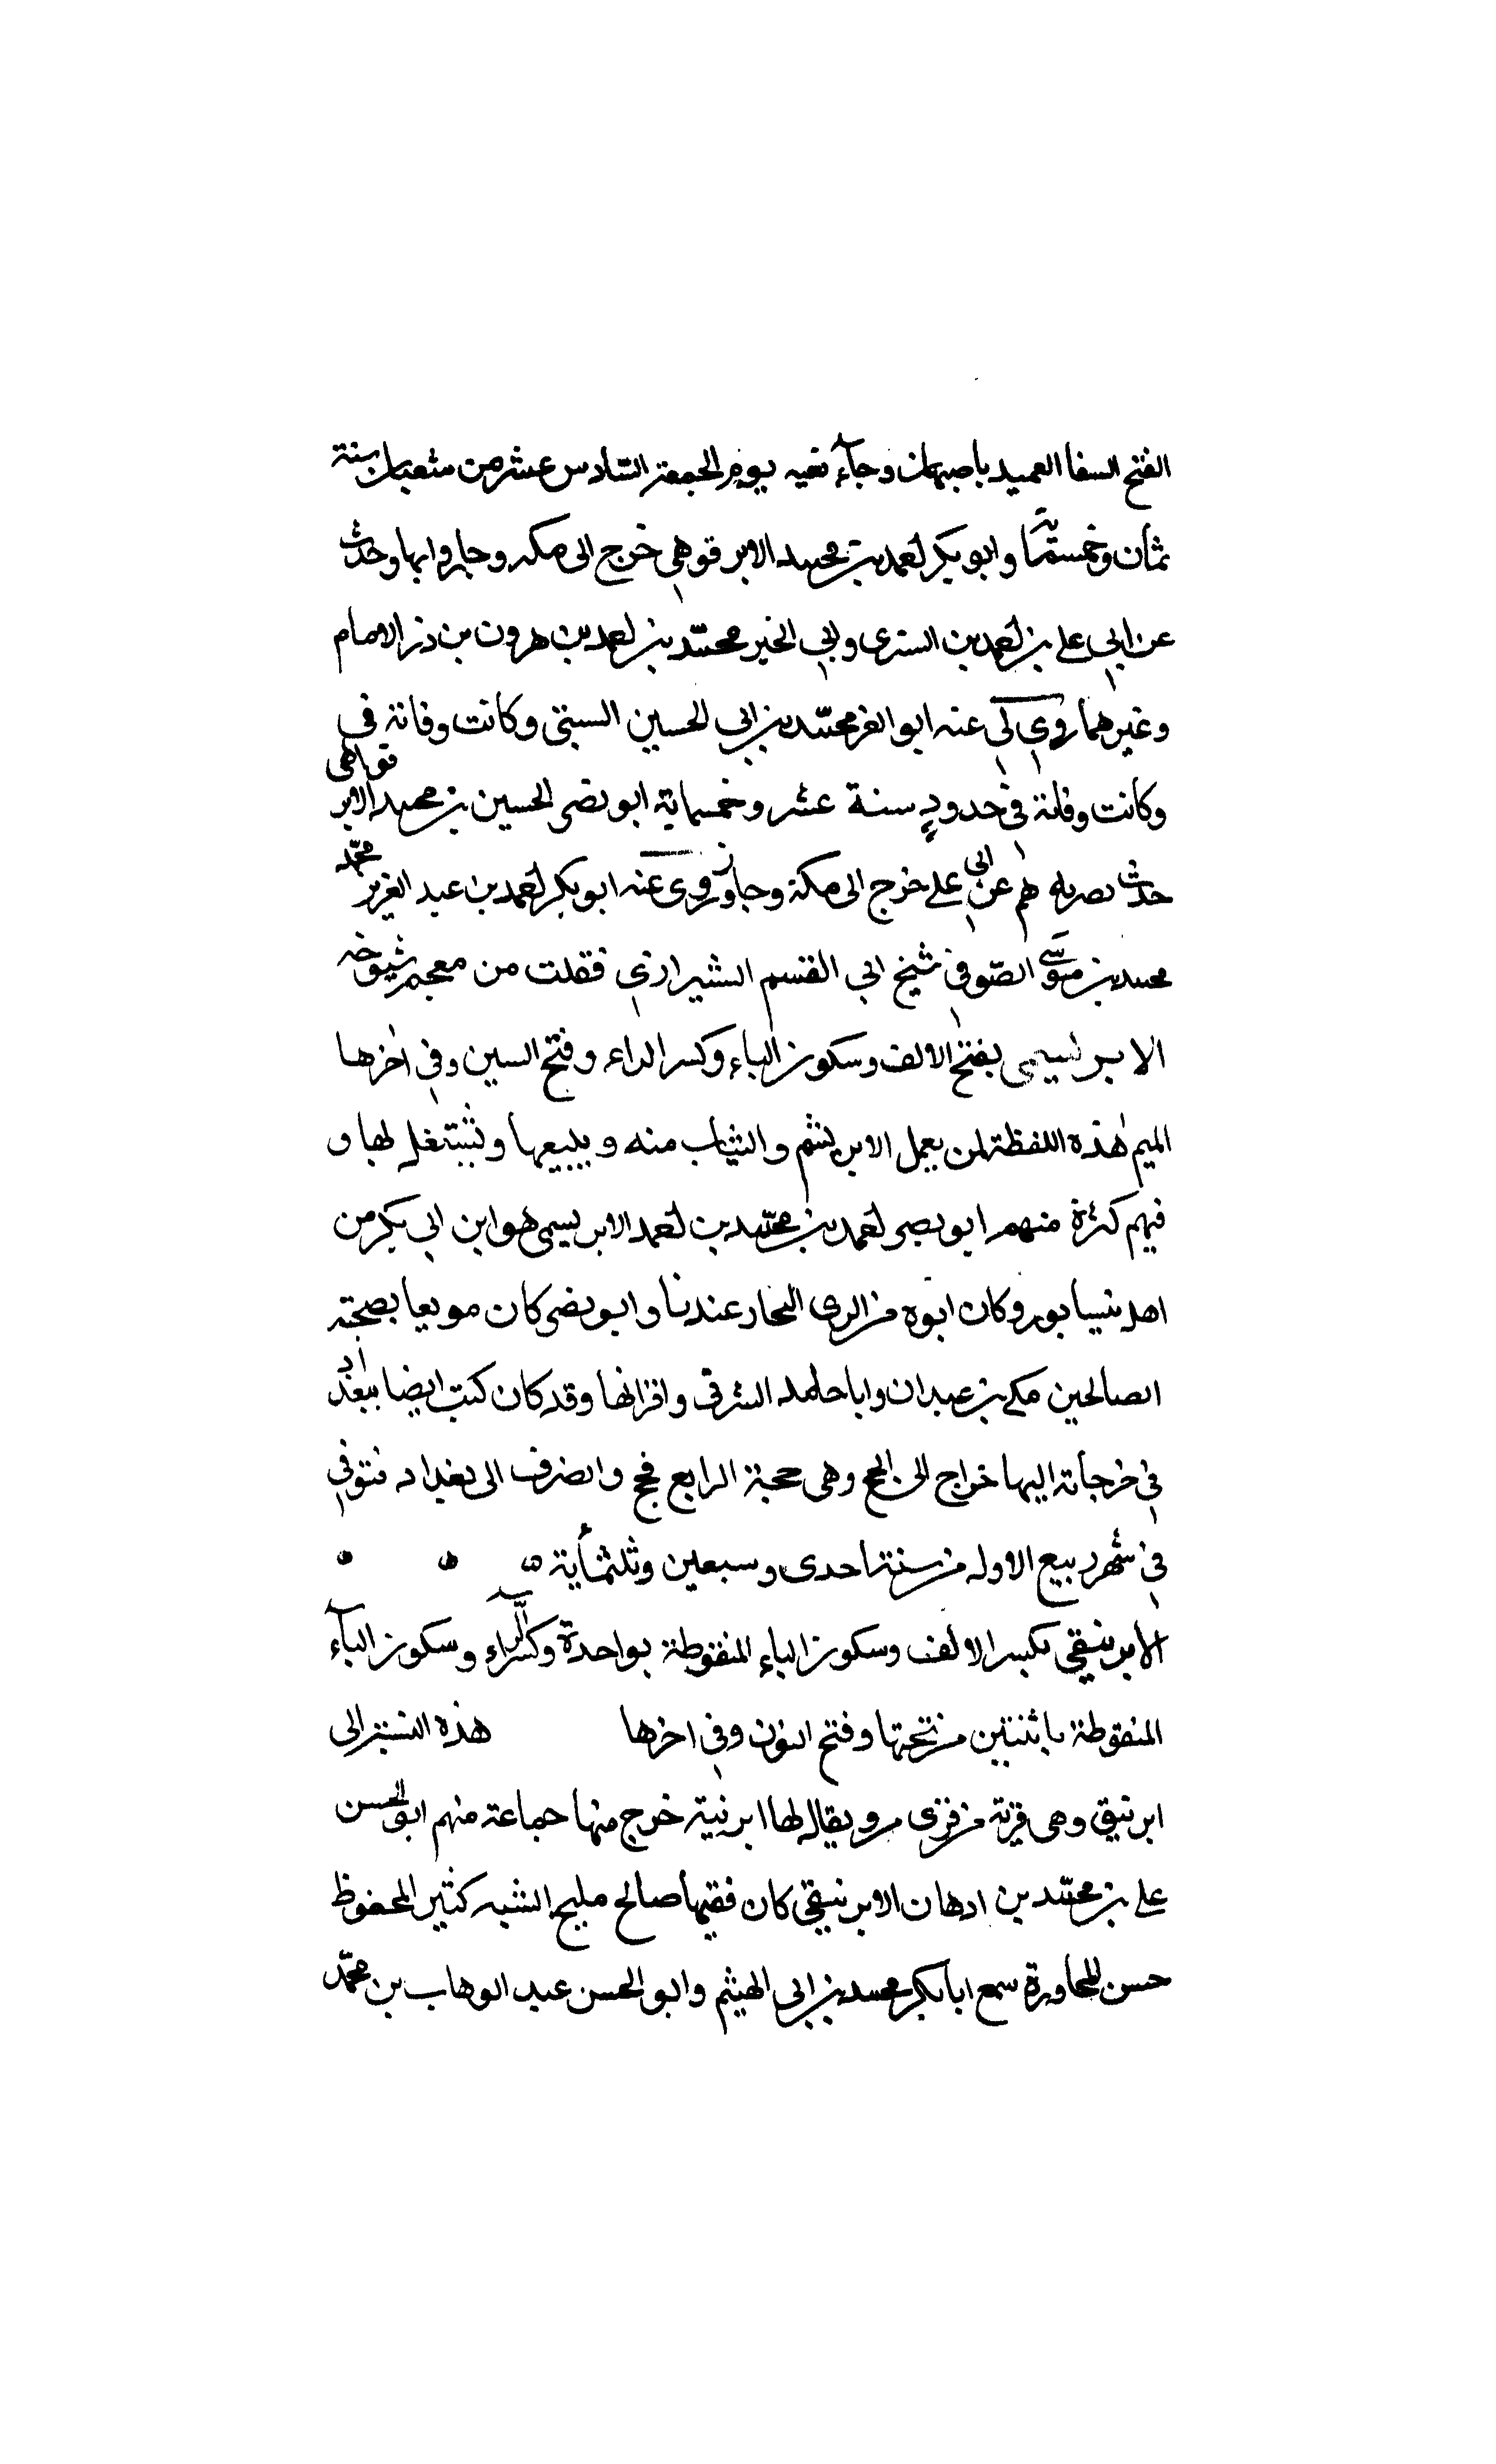 الفتح السفا العميد باصبهان وجآء نعيه يوم الجمعة السّادس عشر من شعبان سنة
ثمان وخمستمائة وابو بكر احمد بن محمد الابرقوهي خرج الى مكه وجاور ابها وحدث
عن ابي على بن احمد بن السترى وابي الخير محمّد بن احمد بن هرون بن ذر الامام
وغيرهما روى لي عنه ابو العز محمّد بن ابي الحسين السبتي وكانت وفاته في
وكانت وفاته في حدود سنة عشر وخمسماية ابو نصر الحسين بن محمد الابرقواهى
حدث نصربه هم عن ابي على خرج الى مكة وجاور وروى عنه ابو بكر احمد بن عبد العزيز محمّد
محمد بن موسى الصّوفي شيخ ابي القسم الشيرازي فقلت من معجم شيوخه
الابريسيمى بفتح الالف وسكون الباء وكسر الراء وفتح السين وفي اخرها
الميم هذه اللفظة لمن يعمل الابريشم والثياب منه ويبيعها وتشتغل لها و
فيهم كثرة منهم ابو نصر احمد بن محمّد بن احمد الابريسمى هو ابن ابي بكر من
اهل نيسابور وكان ابوه من الرى التجار عندنا وابو نصر كان مويعا بصحبة
الصالحين مكي بن عبدان وابا حامد الشرقى واقرانها وقد كان كتب ايضا ببغداد
في خرجاته اليها خراج الى الحج وهى حجة الرابع فحج وانصرف الى بغداد فتوفي
في شهر ربيع الاول من سنة احدى وسبعين وثلثمأية
الابرينيقي بكسر الالف وسكون الباء المنقوطة بواحدة وكسر الراء وسكون اليآء
المنقوطة باثنتين من تحتها وفتح النون وفي اخرها هذه النسبة الى
ابرنيق وهى قرية من قرى مرو يقال لها ابرنية خرج منها جماعة منهم ابو الحسن
على بن محمّد بن ادهان الابرينيقي كان فقيها صالح مليح الشيبه كثير المحفوظ
حسن المحاورة سمع ابا بكر محمد بن ابى الهيثم وابو الحسن عبد الوهاب بن محمّد